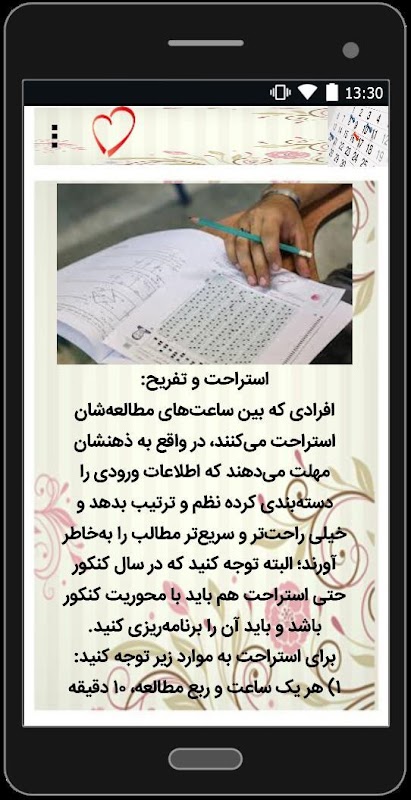 13:30
2 3 4
استراحت و تفریح:
افرادی که بین ساعت‌های مطالعه‌شان
استراحت می‌کنند، در واقع به ذهنشان
مهلت می‌دهند که اطلاعات ورودی را
دسته‌بندی کرده نظم و ترتیب بدهد و
خیلی راحت‌تر و سریع‌تر مطالب را به‌خاطر
آورند؛ البته توجه کنید که در سال کنکور
حتی استراحت هم باید با محوریت کنکور
باشد و باید آن را برنامه‌ریزی کنید.
برای استراحت به موارد زیر توجه کنید:
۱) هر یک ساعت و ربع مطالعه، ۱۰ دقیقه